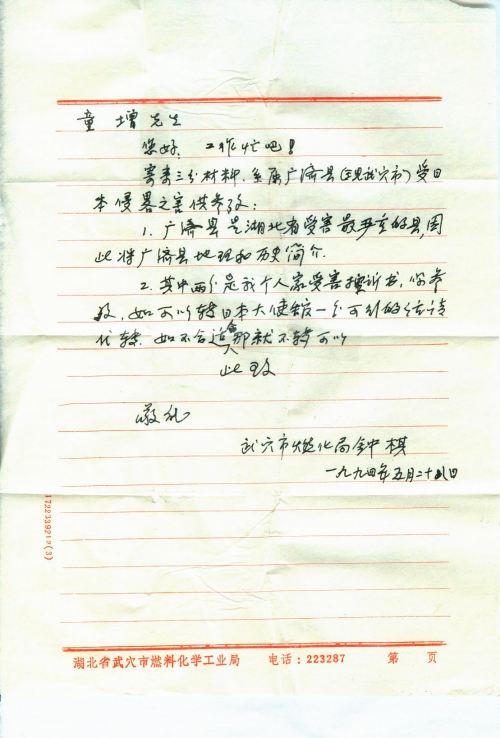 童增先生
您好，工作忙吧！
寄来三分材料，是原广济县（现武穴市）受日
本侵畧之害供参攷：
1. 广济县是湖北省受害最严重的县，因
此将广济县地理和历史简介.
2. 其中两个是我个人家受害控诉书，你参
攷，如可以转日本大使馆一个可利的话请
代转. 如不合适那就不转可以
此致
敬礼
武穴市燃化局 钟棋
一九九四年五月二十八日
172233921²(3)
湖北省武穴市燃料化学工业局 电话：223287 第 页